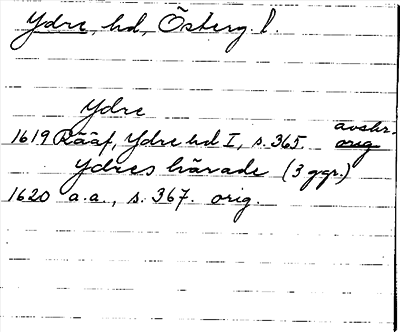 Ydre, hd, Österg. l.
Ydre
1619 Rääf, Ydre hd I, s. 365. avskr. orig
Ydres härade (3 ggr.)
1620 a.a., s. 367. orig.